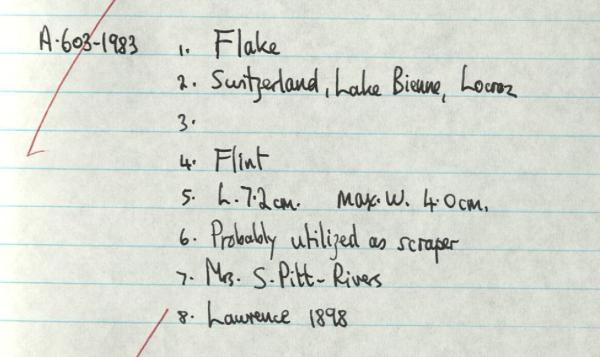 A.603-1983 1. Flake
2. Switzerland, Lake Bienne, Locraz
3.
4. Flint
5. L. 7.2cm. Max. W. 4.0cm.
6. Probably utilized as scraper
7. Mrs. S. Pitt-Rivers
8. Lawrence 1898